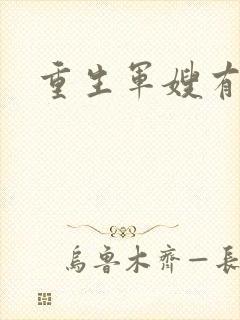 重生軍嫂有
烏魯木齊一長